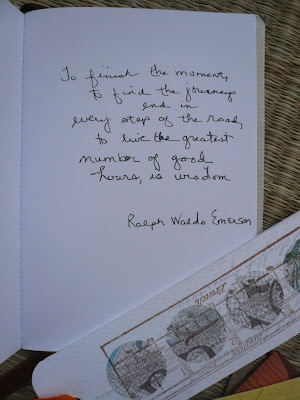 To finish the moment,
to find the journeys
end in
every step of the road,
to live the greatest
number of good
hours, is wisdom
Ralph Waldo Emerson